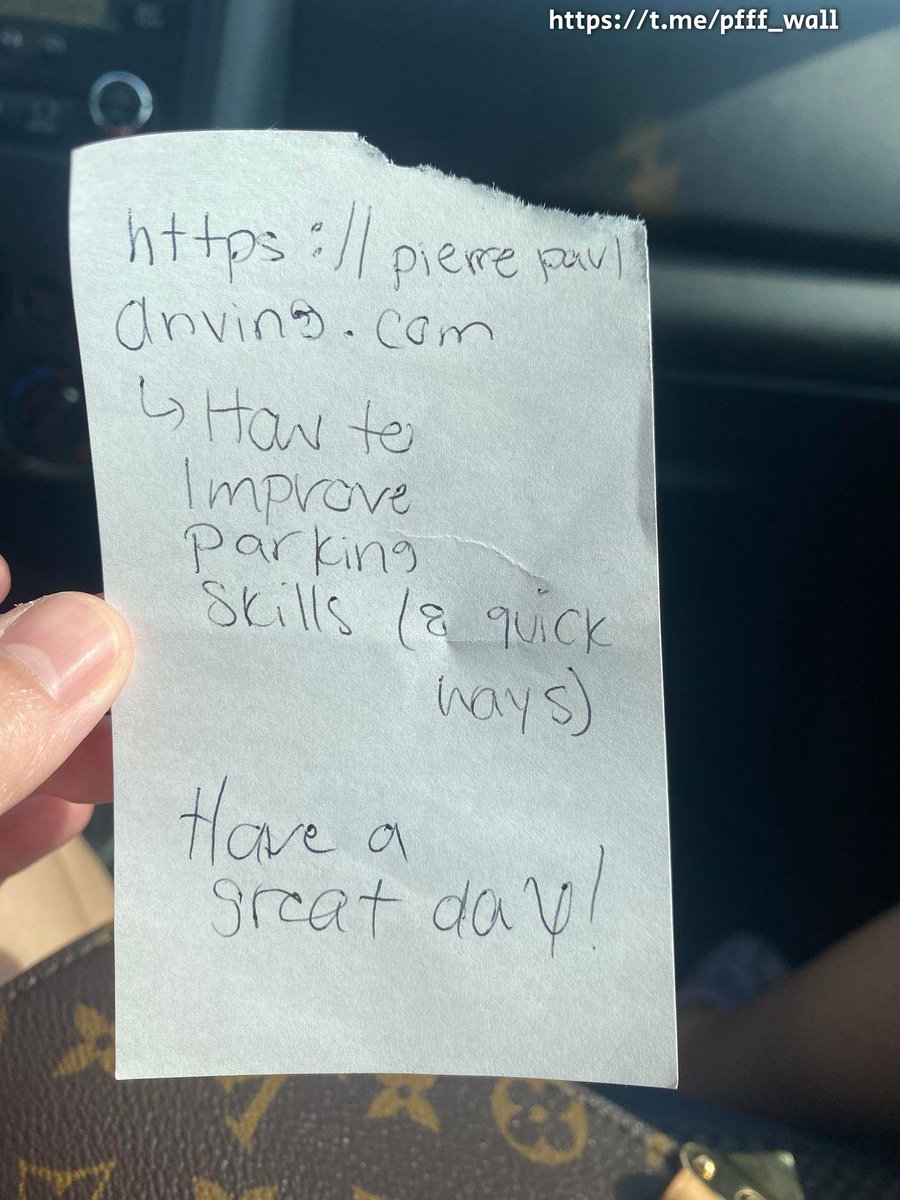 https://t.me/pfff_wall
https://pierrepaul
driving.com
↳ How to
Improve
Parking
Skills (8 quick
ways)
Have a
great day!